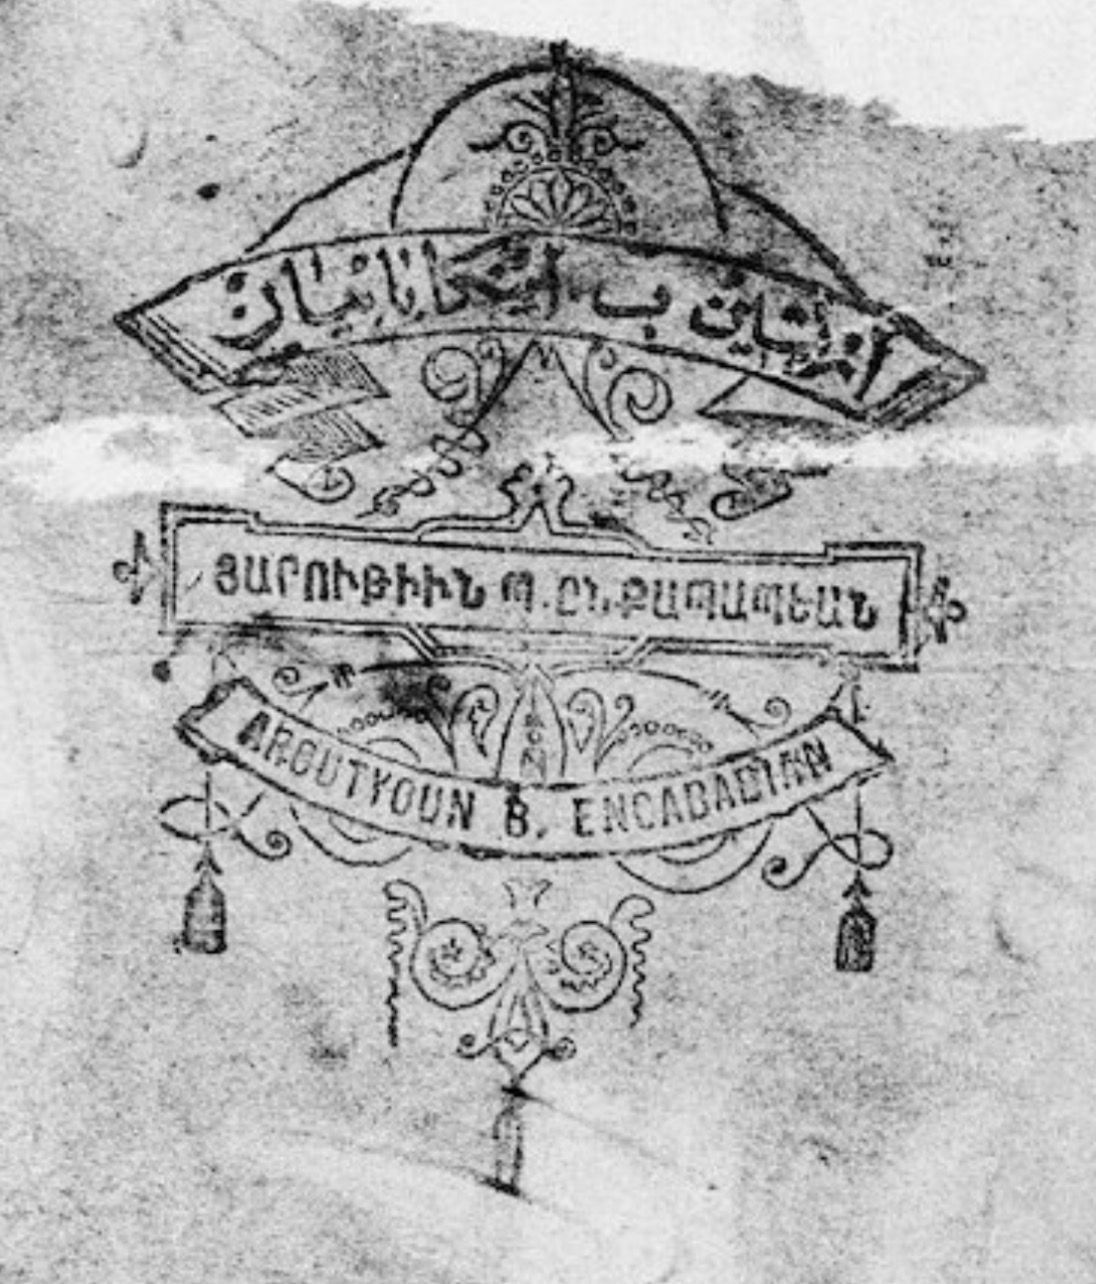 ب اینکابابیان
ՅԱՐՈՒԹԻՒՆ Պ. ԸՆՔԱՊԱՊԵԱՆ
AROUTYOUN B. ENCABABIAN